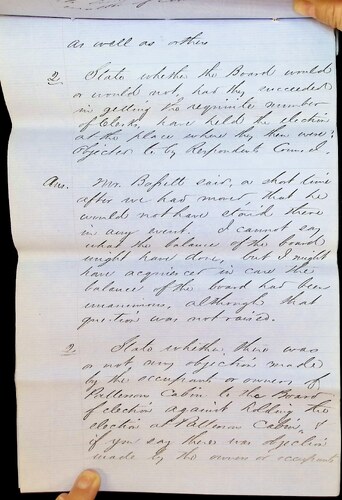 as well as others
2. State whether the Board would
or would not, had they succeeded
in getting the requisite number
of Clerks, have held the election
at the place where they then were?
Objected to by Respondents Counsel.
Ans. Mr. Bassett said, a short time
after we had moved, that he
would not have staid there
in any event. I cannot say
what the balance of the board
might have done, but I might
have acquiesced in case the
balance of the board had been
unanimous, although that
question was not raised.
2 State whether there was
or not any objection made
by the occupants or owners of
Patterson Cabin to the Board
of election against holding the
election at Patterson Cabin, &
if you say there was objection
made by the owners or occupants